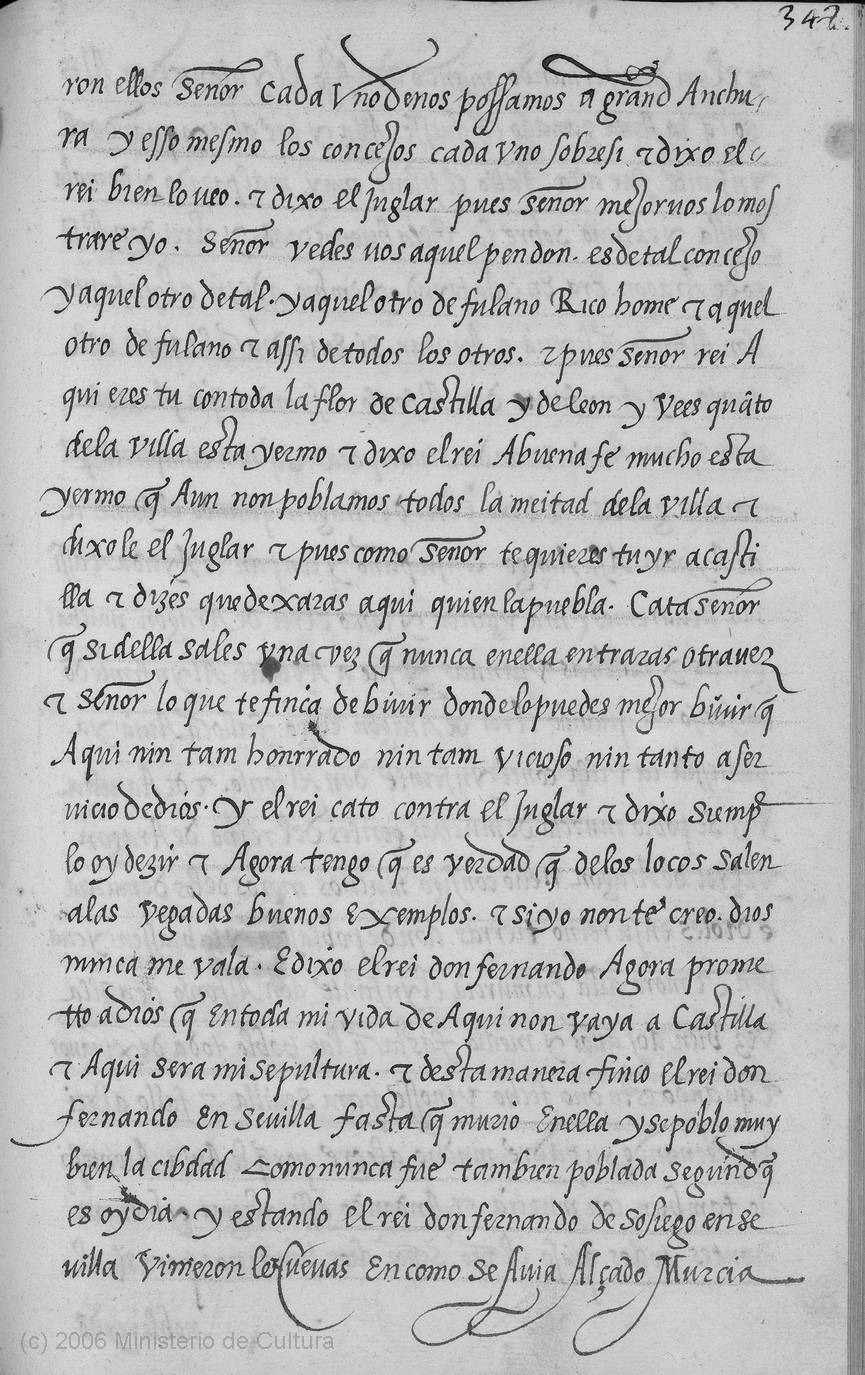 342.
ron ellos señor cada Vno de nos possamos a grand Anchu
ra y esso mesmo los concejos cada vno sobresi & dixo el
rei bien lo veo. & dixo el Juglar pues señor mejor uos lo mos
trare yo. Señor vedes uos aquel pendon. es de tal concejo
y aquel otro de tal. y aquel otro de fulano Rico home & aquel
otro de fulano & assi de todos los otros. & pues señor rei A
qui eres tu con toda la flor de Castilla y de leon y Vees quãto
de la villa esta yermo & dixo el rei A buena fe mucho esta
yermo q̃ Aun non poblamos todos la meitad de la villa &
dixo le el Juglar & pues como señor te quieres tu yr a casti
lla & dizes que dexaras aqui quien la puebla. Cata señor
q̃ si della sales vna vez q̃ nunca en ella entraras otra uez
& señor lo que te finca de biuir donde lo puedes mejor biuir q̃
Aqui nin tam honrrado nin tam vicioso nin tanto a ser
uicio de dios. Y el rei cato contra el Juglar & dixo siemp̃
lo oy dezir & Agora tengo q̃ es verdad q̃ de los locos salen
a las vegadas buenos Exemplos. & si yo non te creo. dios
nunca me vala. E dixo el rei don fernando Agora prome
tto a dios q̃ En toda mi vida de Aqui non vaya a Castilla
& Aqui sera mi sepultura. & desta manera finco el rei don
fernando En Sevilla fasta q̃ murio Enella y se poblo muy
bien la cibdad Como nunca fue tambien poblada segund q̃
es oy dia. y estando el rei don fernando de sosiego en se
villa Vinieron le nuevas En como se Avia Alçado Murcia
(c) 2006 Ministerio de Cultura